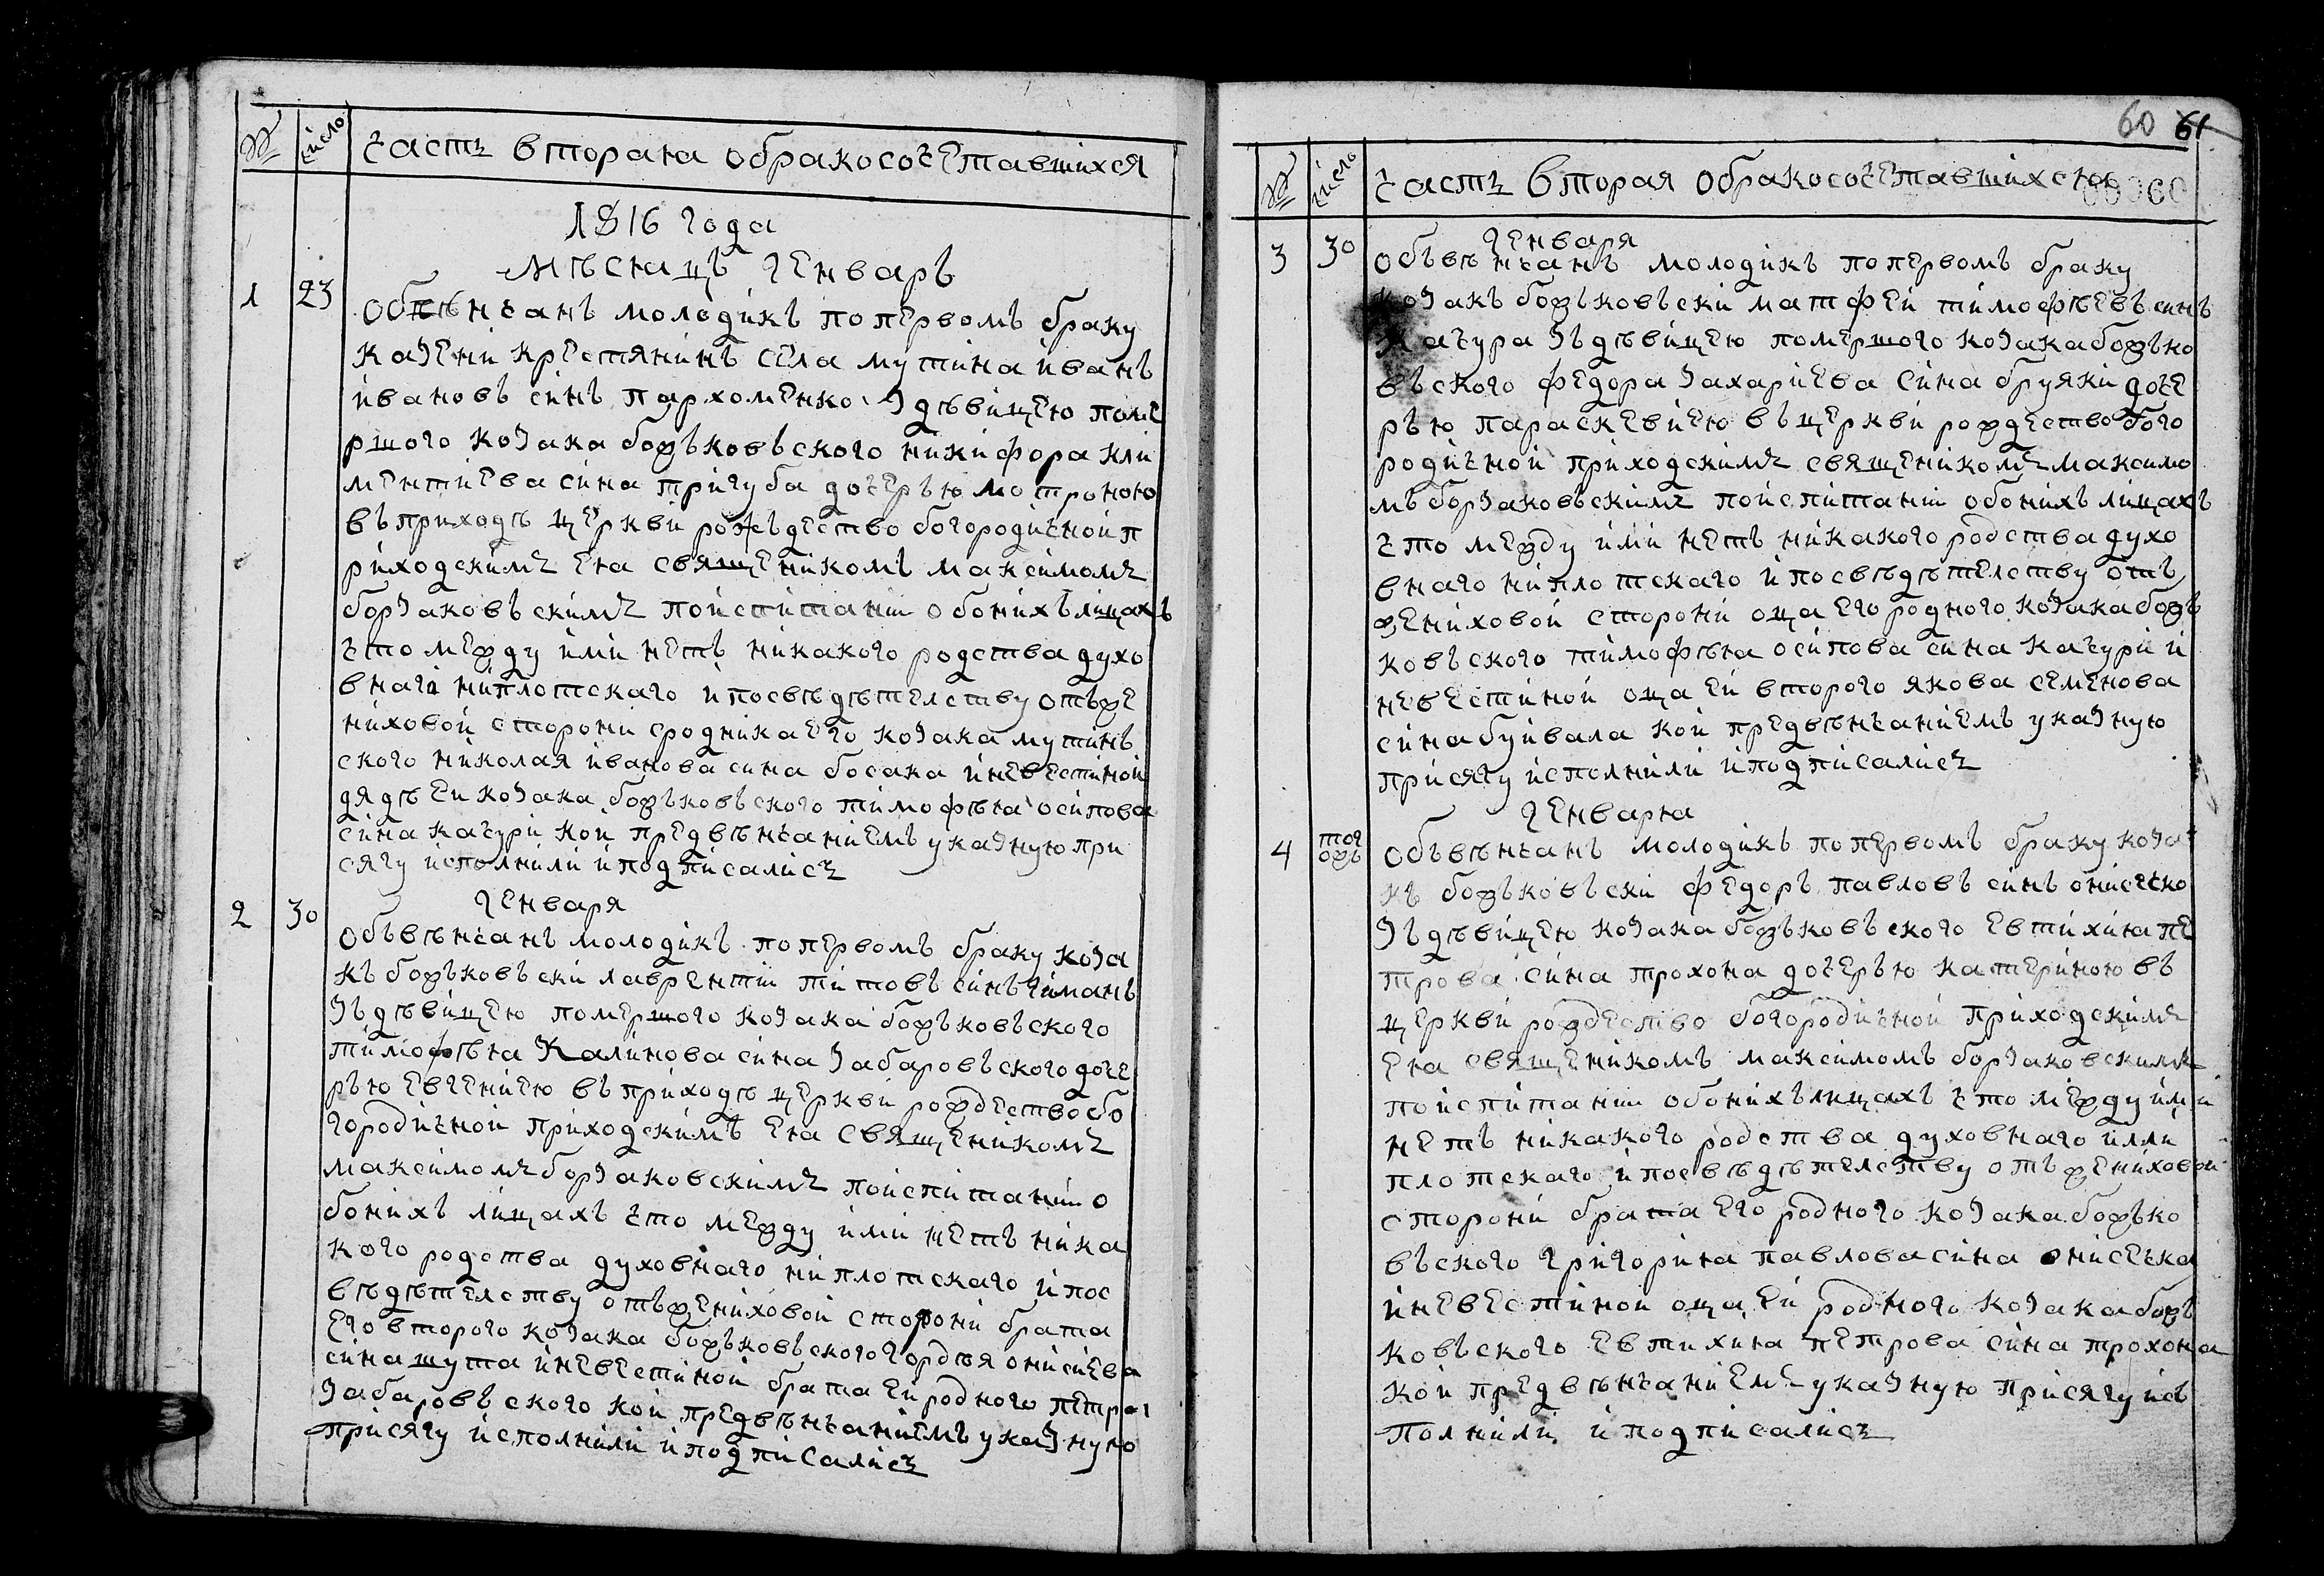 № число частъ вторая обракосочетавшихся
1816 года
мѣсяцъ генварь
1 23 Обвѣнчанъ молодикъ поперв­омъ браку
казени крестянинъ села мутина иванъ
ивановъ синъ пархоменко здѣвицею поме
ршого козака божъковъского никифора кли
ментиева сина тригуба дочерью мотроною
въприходѣ церкви рожъдество богородичной п
риходскимъ ея священикомъ максимомъ
борзаковъскимъ поиспитании обонихълицахъ
что между ими нетъ никакого родства духо
внаго ниплотскаго ипосвѣдѣтелству отъже
ниховой сторони сродника его козака мутинъ
ского николая иванова сина босака иневестиной
дядѣ еи козака божъковъского тимофѣя осипова
сина качури кои предвѣнчаниемъ указную при
сягу исполнили иподписалисъ
генваря
2 30 Объвѣнчанъ молодикъ поперв­омъ браку коза
къ божъковъски лаврентии титовъ синъ гиманъ
зъдѣвицею помершого козака божъковъского
тимофѣя Калинова сина забаровъского доче
рью евгениею въприходѣ церкви рождество бо
городичной приходскимъ ея священикомъ
максимомъ борзаковскимъ поиспитании о
бонихъ лицахъ что между ими нетъ ника
кого родства духовнаго ниплотскаго ипос
вѣдѣтелству отъжениховой сторони брата
его второго козака божъковъского гордѣя онисиева
сина шута иневестиной брата еи родного петра
забаровъского кои предвѣнчаниемъ указную
присягу исполнили иподписалисъ
60 61
№ число частъ вторая обракосочетавшихся 00060
генваря
3 30 Объвѣнчанъ молодикъ поперв­омъ браку
козакъ божъковъски матфеи тимофѣевъ синъ
качура зъдѣвицею помершого козака божъко
въского федора захариева сина бруяки доче
рью параскевиею въцеркви рождество бого
родичной приходскимъ священикомъ максимо
мъ борзаковъскимъ поиспитании обонихъ лицахъ
что между ими нетъ никакого родства духо
внаго ниплотскаго ипосвѣдѣтелству отъ
жениховой сторони оца его родного козака божъ
ковъского тимофѣя осипова сина качури и
невестиной оца еи второго якова семенова
сина буивала кои предвѣнчаниемъ указную
присягу исполнили иподписалисъ
генваря
4 тогожъ Объвѣнчанъ молодикъ поперв­омъ браку коза
къ божъковъски федоръ павловъ синъ онисечко
зъдѣвицею козака божъковъского евтихия пе
трова сина трохона дочерью катериною въ
церкви рождество богородичной приходскимъ
ея священикомъ максимомъ борзаковскимъ
поиспитании обонихълицахъ что между ими
нетъ никакого родства духовнаго илли
плотскаго ипосвѣдѣтелству отъ жениховой
сторони брата его родного козака божъко
въского григория павлова сина онисечка
иневестиной оца еи родного козака божъ
ковъского евтихия петрова сина трохона
кои предвѣнчаниемъ указную присягу исъ
полнили иподписалисъ